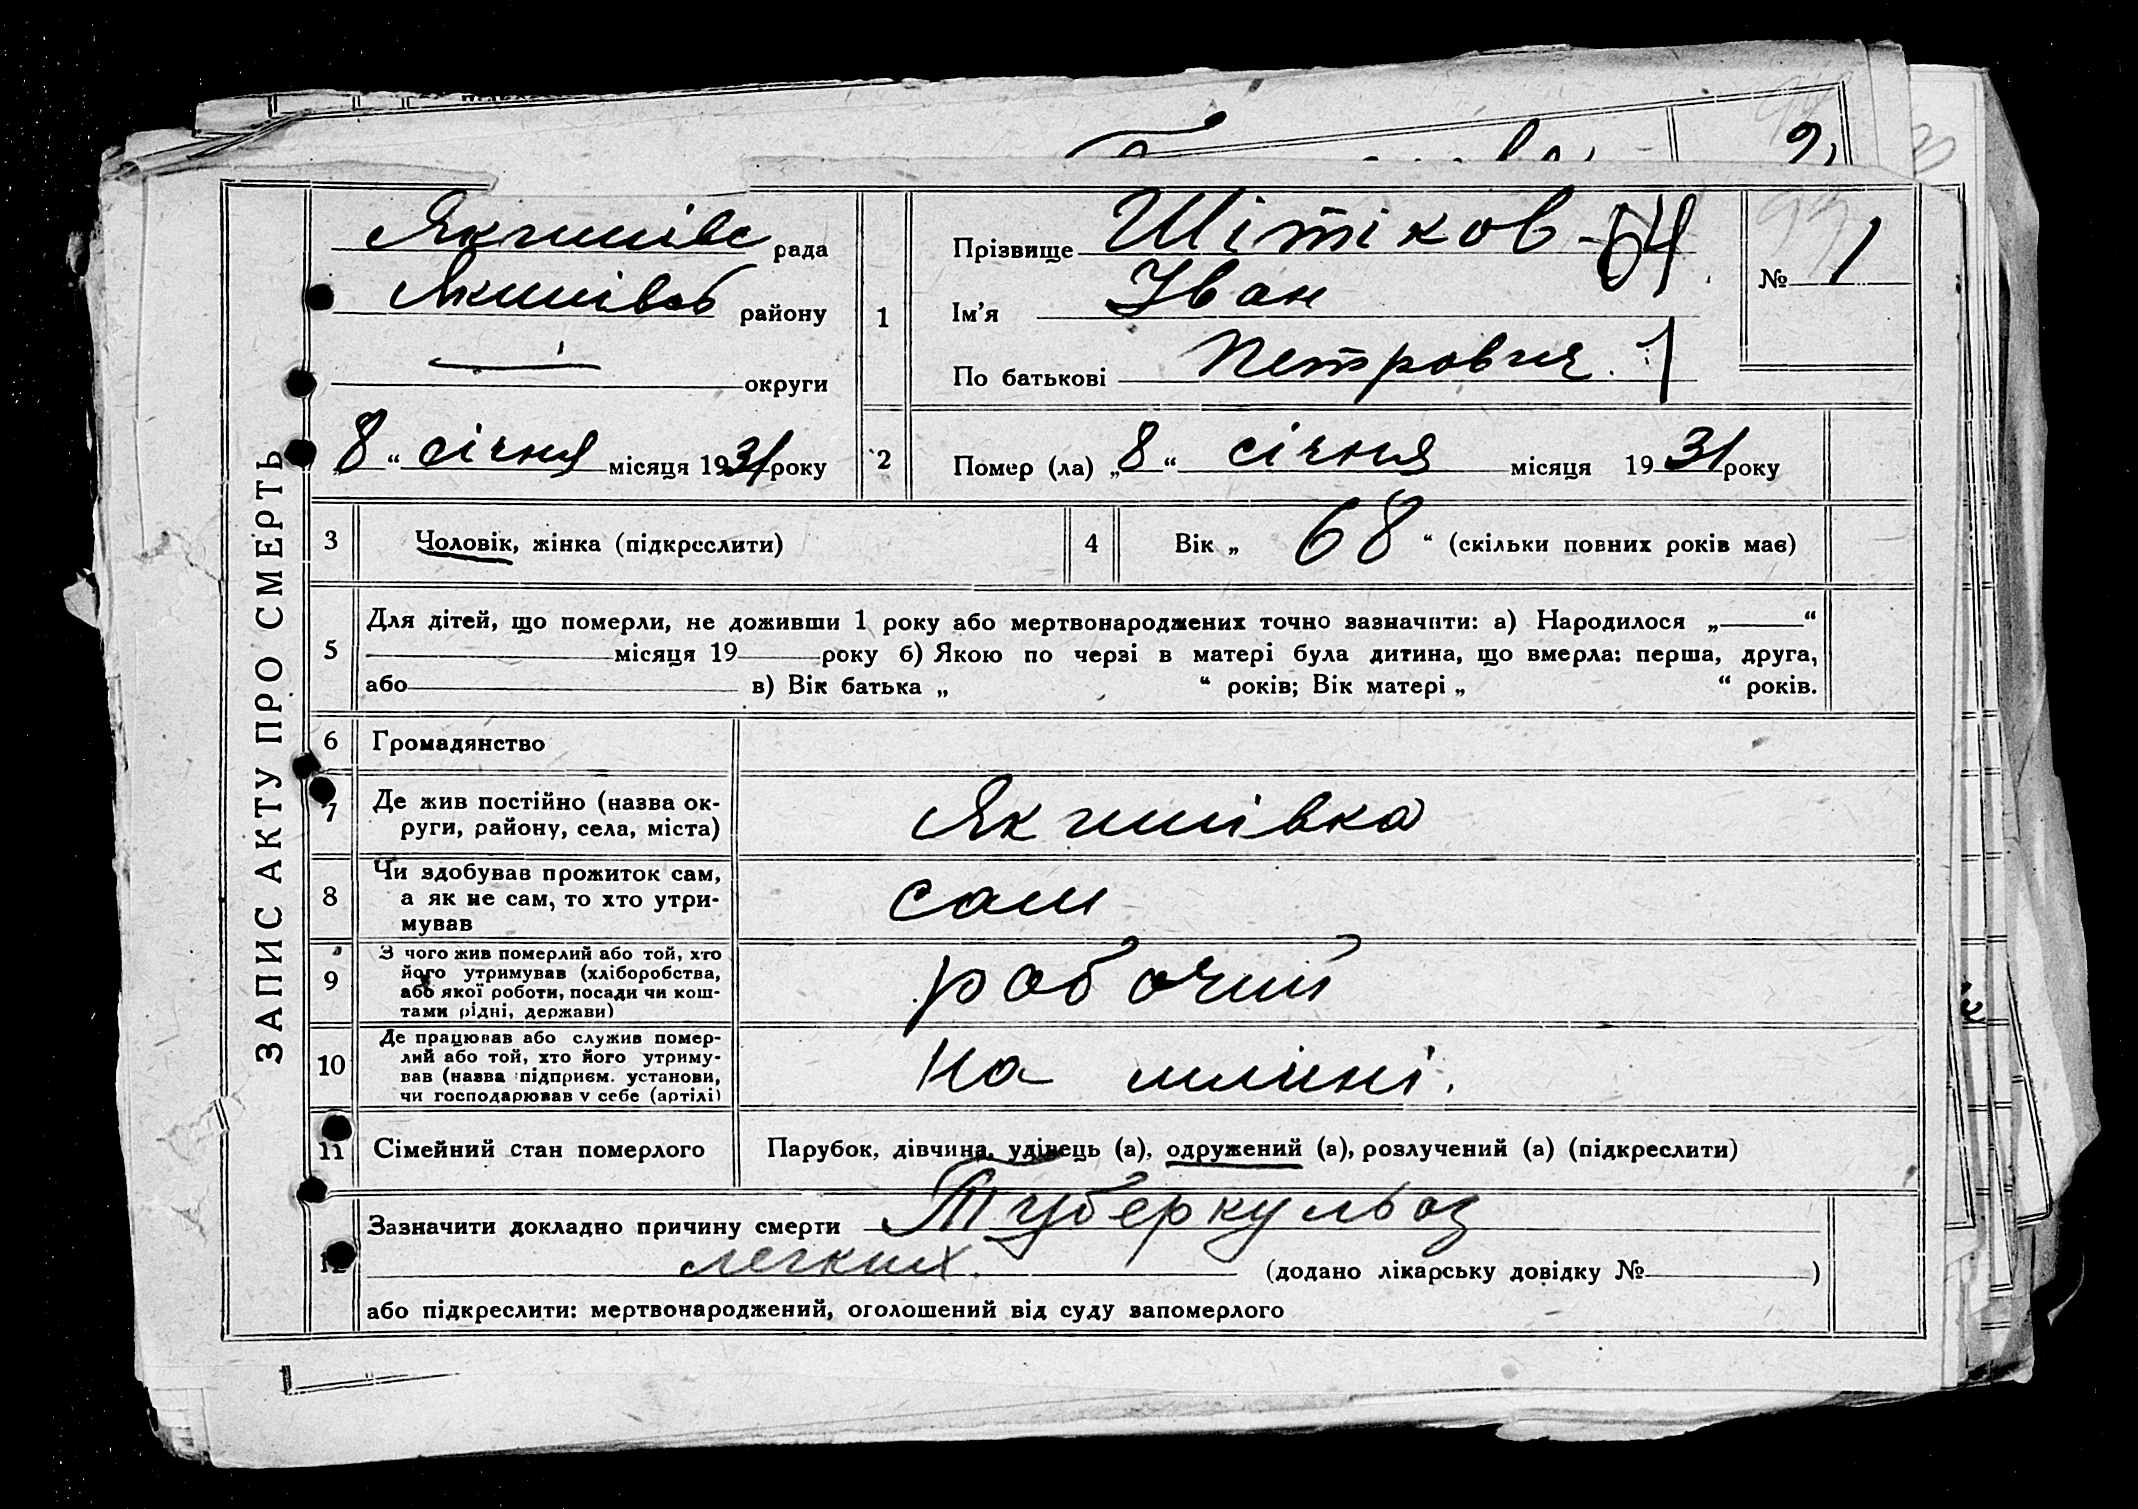 ЗАПИС АКТУ ПРО СМЕРТЬ
Якимівс рада
Якимівсь району
округи
8 “ січня місяця 1931 року
1
Прізвище Шітіков 64
Ім'я Іван
По батькові Петрович. 1
№ 1
2 Помер (ла) „8“ січня місяця 1931 року
3 Чоловік, жінка (підкреслити)
4 Вік „ 68 “ (скільки повних років має)
5 Для дітей, що померли, не доживши 1 року або мертвонароджених точно зазначити: а) Народилося „ “
місяця 19 року б) Якою по черзі в матері була дитина, що вмерла: перша, друга,
або в) Вік батька „ “ років; Вік матері „ “ років.
6 Громадянство
7 Де жив постійно (назва ок-
руги, району, села, міста) Якимівка
8 Чи здобував прожиток сам,
а як не сам, то хто утри-
мував сам
9 З чого жив померлий або той, хто
його утримував (хліборобства,
або якої роботи, посади чи кош-
тами рідні, держави) робочий
10 Де працював або служив помер-
лий або той, хто його утриму-
вав (назва підприєм. установи,
чи господарював у себе (артілі) на млині.
11 Сімейний стан померлого Парубок, дівчина, удівець (а), одружений (а), розлучений (а) (підкреслити)
12 Зазначити докладно причину смерти Туберкульоз
легких. (додано лікарську довідку № )
або підкреслити: мертвонароджений, оголошений від суду запомерлого